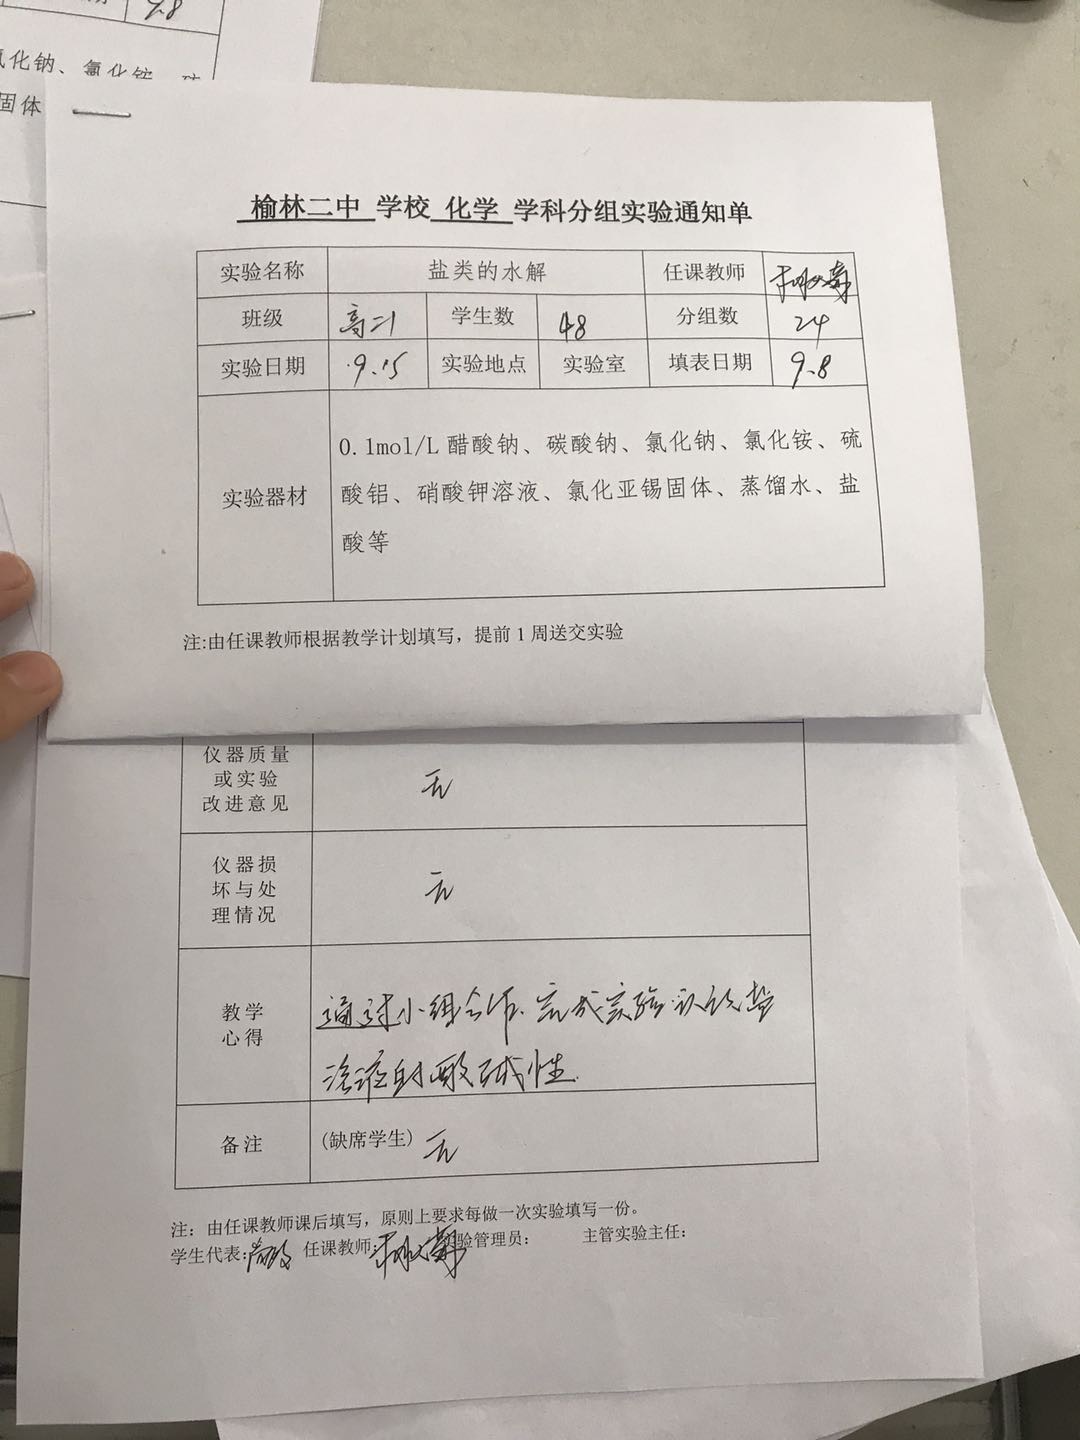 9.8
氯化钠、氯化铵、硫
固体
榆林二中 学校 化学 学科分组实验通知单
实验名称 盐类的水解 任课教师
班级 高二1 学生数 48 分组数 24
实验日期 9.15 实验地点 实验室 填表日期 9.8
实验器材
0.1mol/L 醋酸钠、碳酸钠、氯化钠、氯化铵、硫
酸铝、硝酸钾溶液、氯化亚锡固体、蒸馏水、盐
酸等
注:由任课教师根据教学计划填写，提前 1 周送交实验
仪器质量
或实验
改进意见
无
仪器损
坏与处
理情况
无
教学
心得
通过小组合作.完成实验.认识盐
溶液的酸碱性.
备注 (缺席学生) 无
注：由任课教师课后填写，原则上要求每做一次实验填写一份。
学生代表: 任课教师: 实验管理员： 主管实验主任：